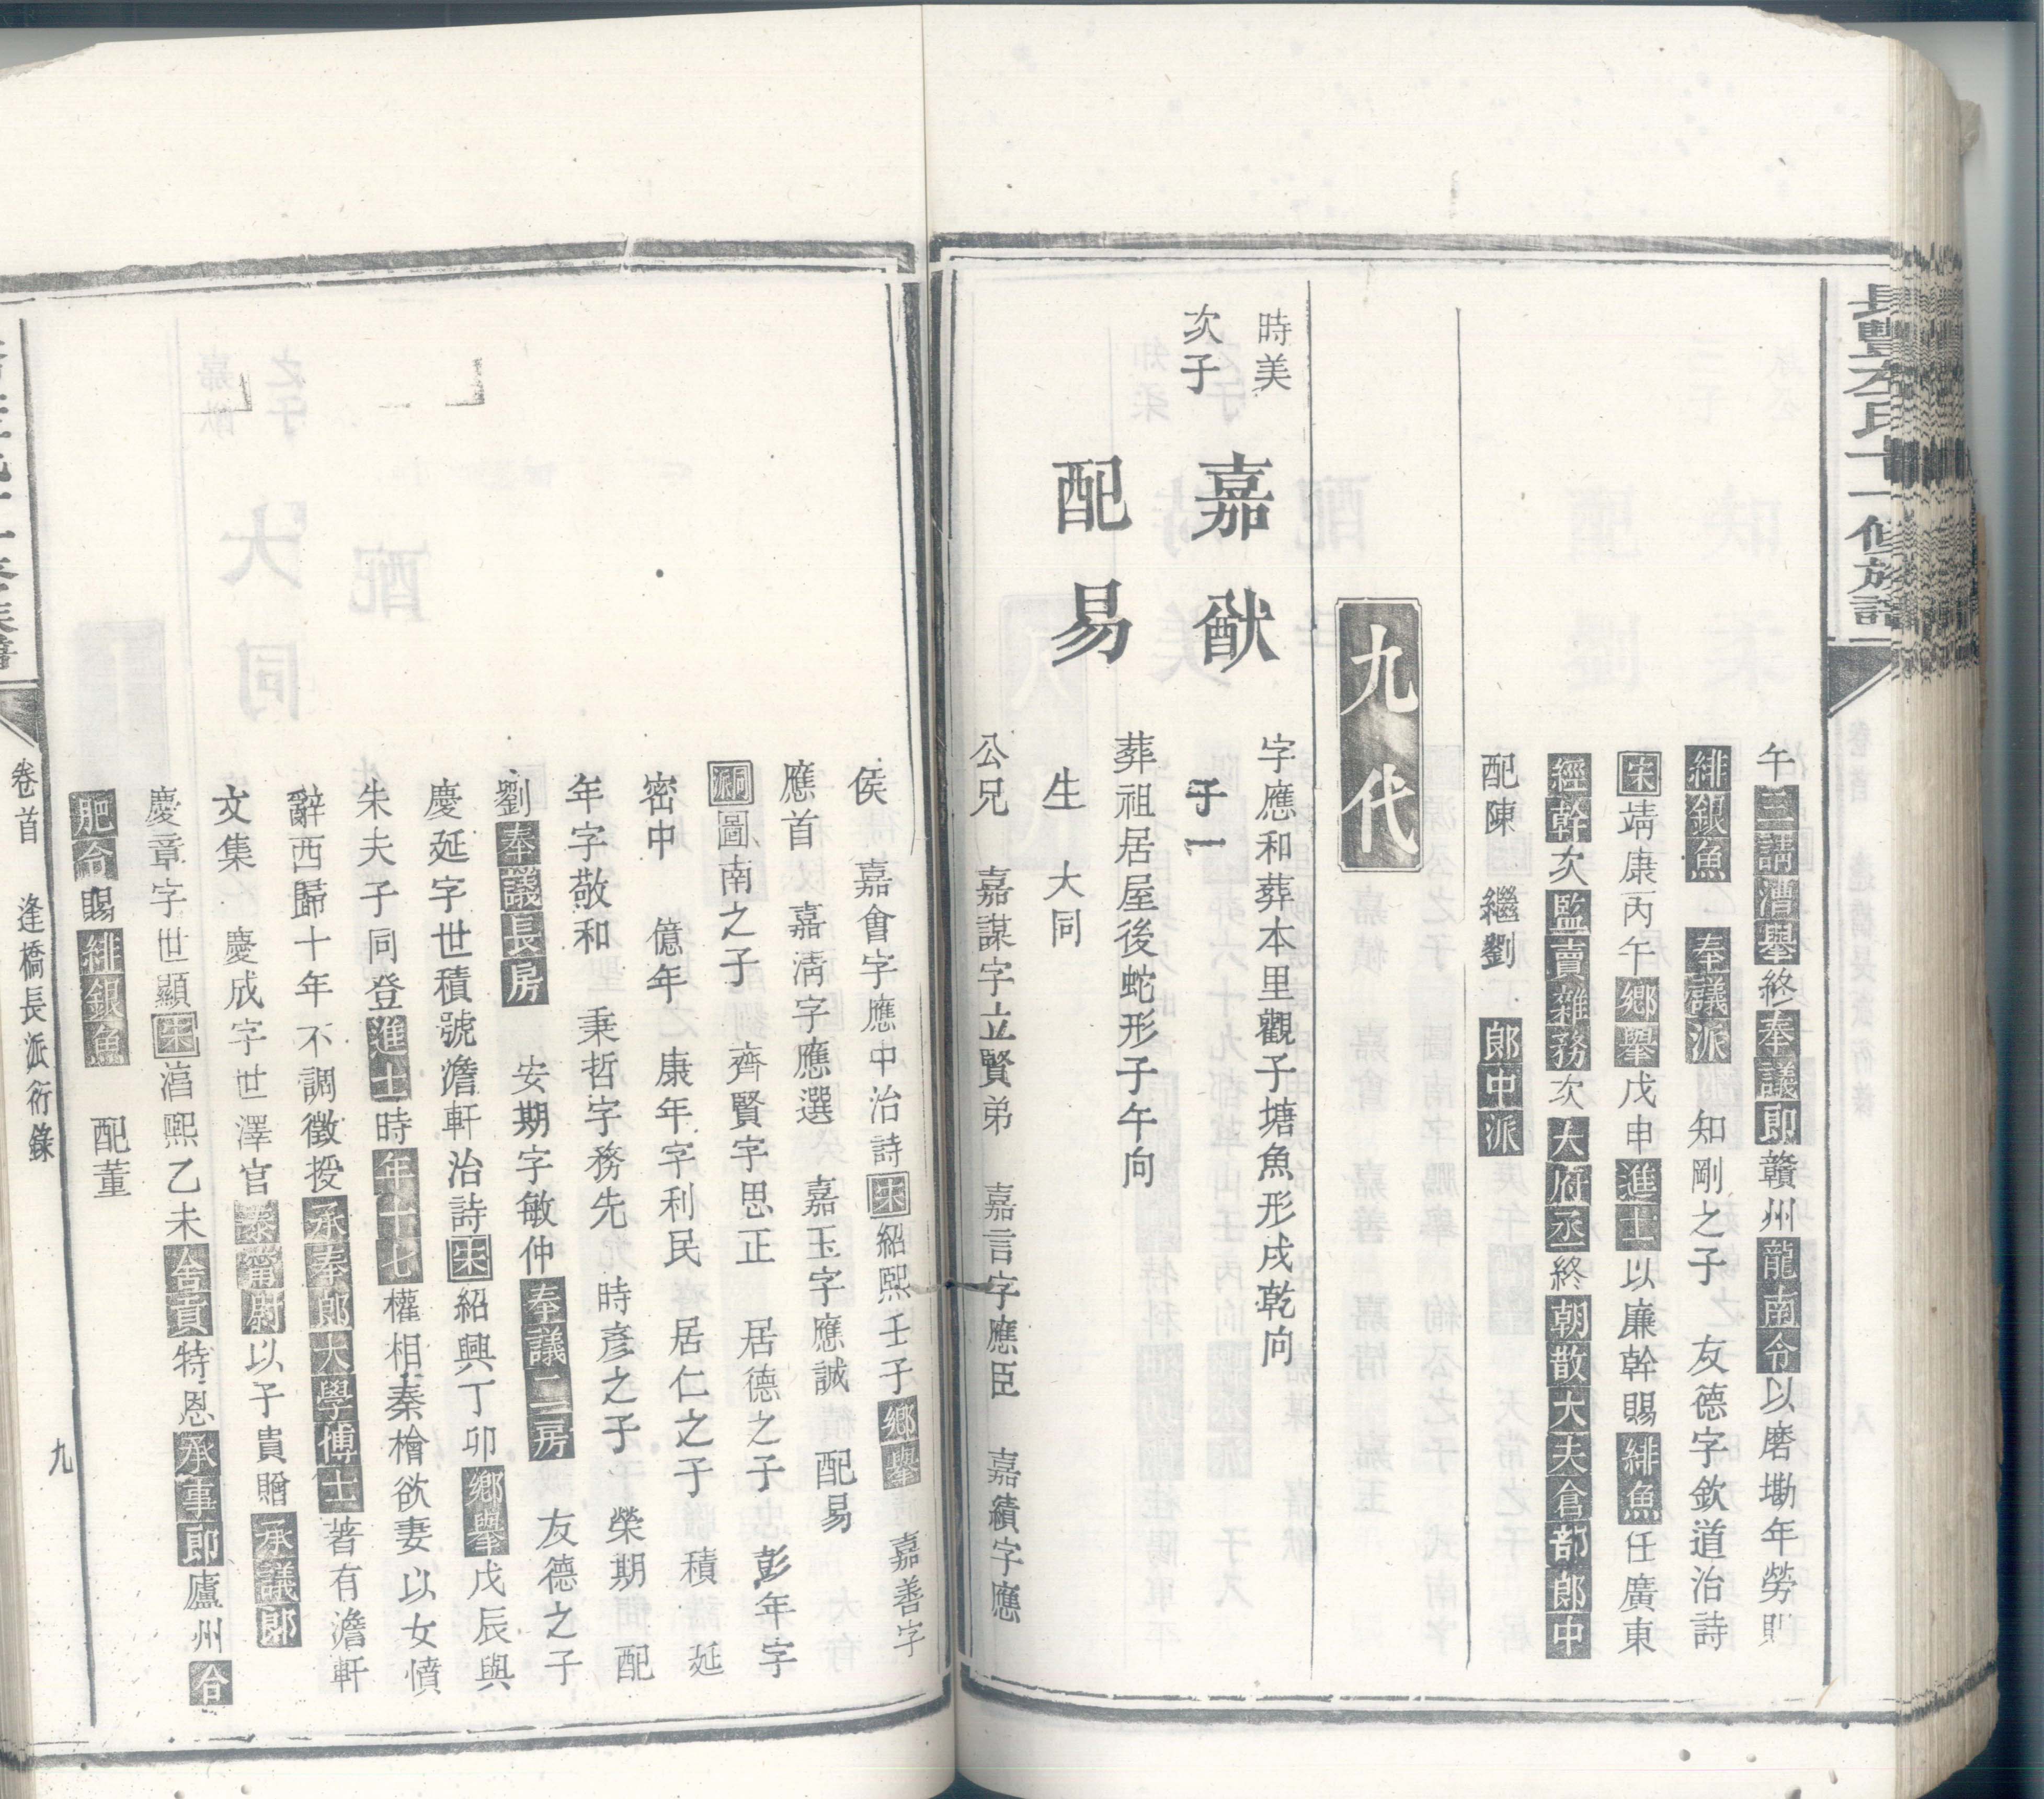 長豐左氏十一修族譜
午三請漕舉終奉議郎贛州龍南令以磨勘年勞賜
緋銀魚 奉議派 知剛之子 友德字欽道治詩
宋靖康丙午鄉舉戊申進士以廉幹賜緋魚任廣東
經幹次監賣雜務次大府丞終朝散大夫倉部郎中
配陳 繼劉 郎中派
九代
時美
次子
嘉猷
字應和葬本里觀子塘魚形戌乾向
子一
配易
葬祖居屋後蛇形子午向
生 大同
公兄 嘉謀字立賢弟 嘉言字應臣 嘉績字應
侯 嘉會字應中治詩宋紹熙壬子鄉舉 嘉善字
應首 嘉清字應選 嘉玉字應誠 配易
洞派圖南之子 齊賢字思正 居德之子 彭年字
密中 億年 康年字利民 居仁之子 積 延
年字敬和 秉哲字務先 時彥之子 榮期 配
劉奉議長房 安期字敏仲奉議二房 友德之子
慶延字世積號澹軒治詩宋紹興丁卯鄉舉戊辰與
朱夫子同登進士時年十七權相秦檜欲妻以女憤
辭西歸十年不調徵授承奉郎大學博士著有澹軒
文集 慶成字世澤官泰甯尉以子貴贈承議郎
慶章字世顯宋淳熙乙未舍貢特恩承事郎廬州合
肥令賜緋銀魚 配董
卷首 逢橋長派衍錄 九